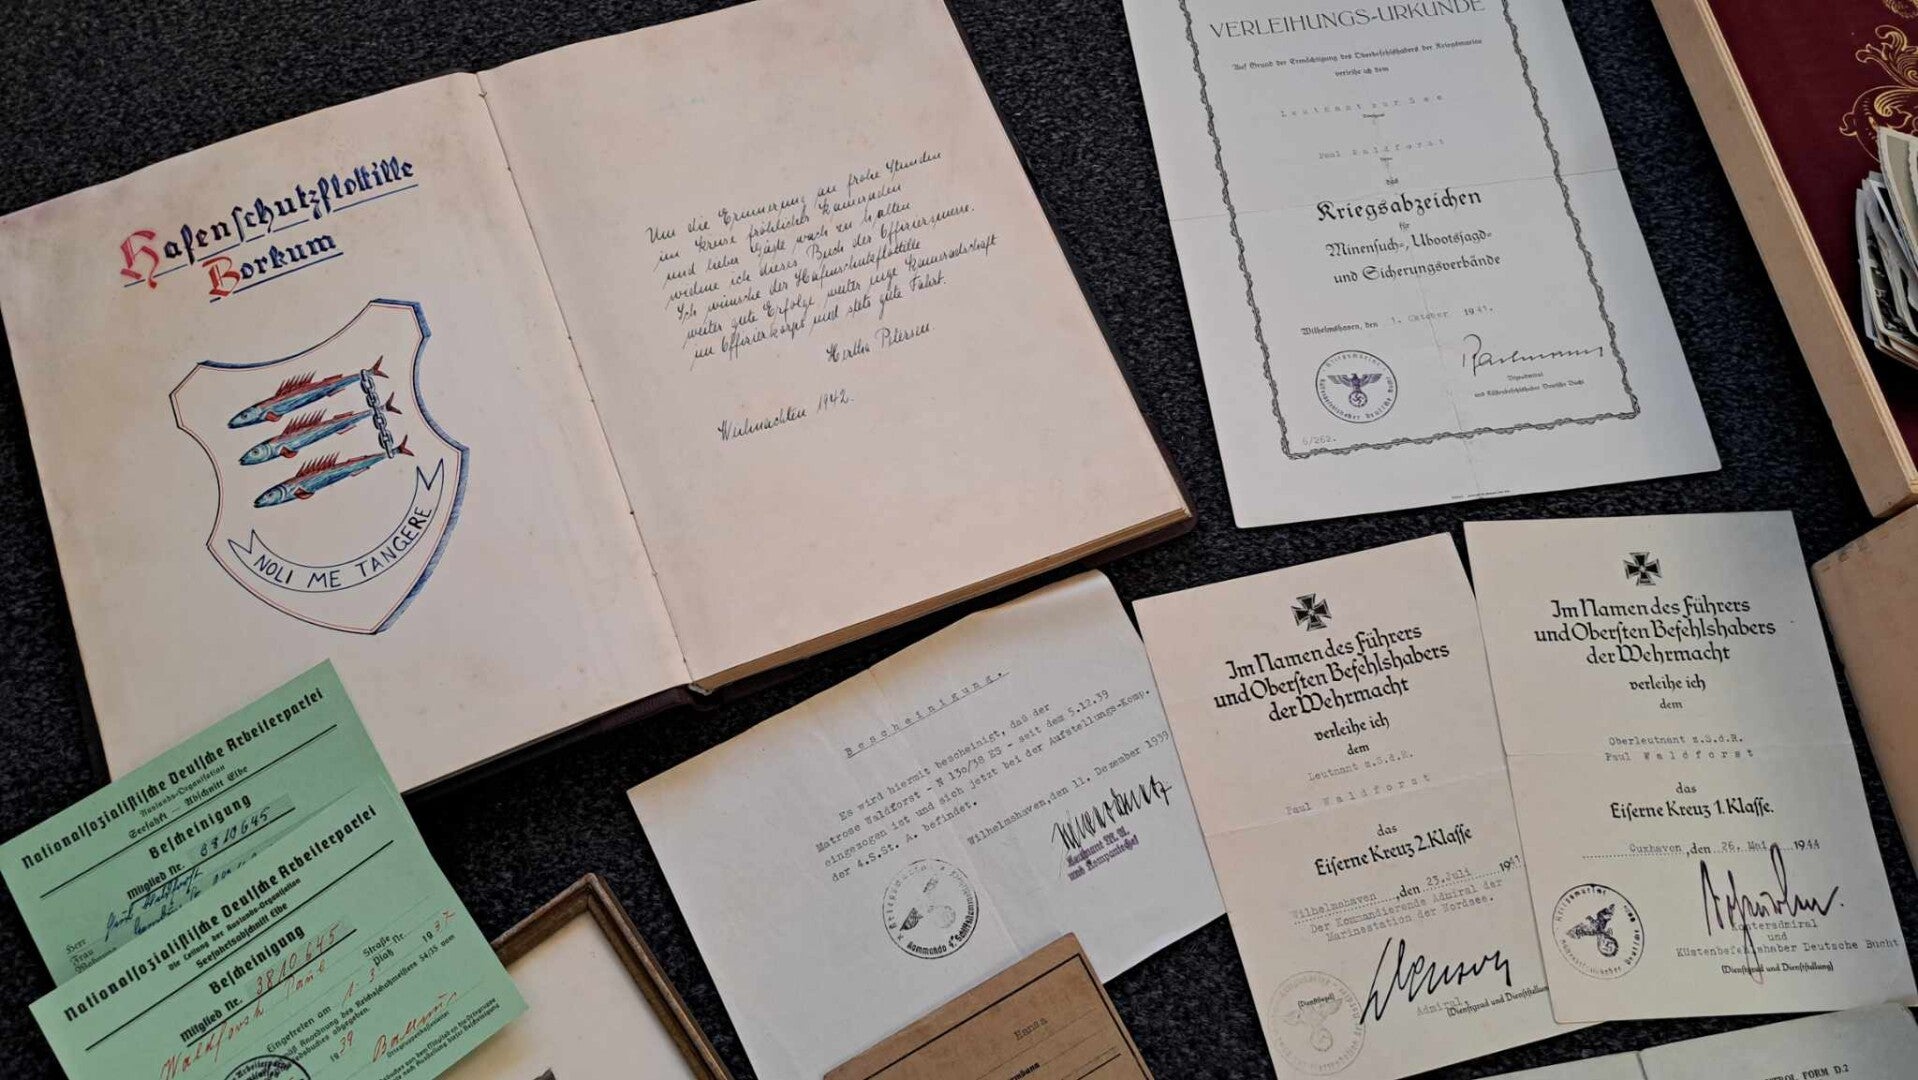 Hafenschutzflottille
Borkum
NOLI ME TANGERE
Um die Erinnerung an frohe Stunden
im Kreise fröhlicher Kameraden
und lieber Gäste wach zu halten
widme ich dieses Buch der Offiziersmesse.
Ich wünsche der Hafenschutzflottille
weiter gute Erfolge, weiter enge Kameradschaft
im Offizierkorps und stets gute Fahrt.
Hertha Petersen.
Weihnachten 1942.
VERLEIHUNGS-URKUNDE
Auf Grund der Ermächtigung des Oberbefehlshabers der Kriegsmarine
verleihe ich dem
Leutnant zur See
Paul Waldforst
das
Kriegsabzeichen
für
Minensuch-, Ubootsjagd-
und Sicherungsverbände
Wilhelmshaven, den 1. Oktober 1941.
Vizeadmiral
und Küstenbefehlshaber Deutsche Bucht
6/262.
Nationalsozialistische Deutsche Arbeiterpartei
Auslands-Organisation
Seefahrt — Abschnitt Elbe
Bescheinigung
Mitglied Nr. 3810645
Herr
Frau
Nationalsozialistische Deutsche Arbeiterpartei
Die Leitung der Auslands-Organisation
Seefahrtsabschnitt Elbe
Bescheinigung
Mitglied Nr. 3810645
Waldforst Paul
Straße
Platz Nr.
Eingetreten am 1. 3. 1937
Anordnung des Reichsschatzmeisters 54/35 vom
abgegeben.
1939
Bescheinigung.
Es wird hiermit bescheinigt, daß der
Matrose Waldforst - N 130/38 ES - seit dem 5.12.39
eingezogen ist und sich jetzt bei der Aufstellungs-Komp.
der 4.S.St. A. befindet.
Wilhelmshaven, den 11. Dezember 1939
Kaptlnt M. A.
und Kompaniechef
Hansa
Im Namen des Führers
und Obersten Befehlshabers
der Wehrmacht
verleihe ich
dem
Leutnant z.S.d.R.
Paul Waldforst
das
Eiserne Kreuz 2. Klasse
Wilhelmshaven, den 23. Juli 1941
Der Kommandierende Admiral der
Marinestation der Nordsee.
(Dienstsiegel)
Admiral
(Dienstgrad und Dienststellung
Im Namen des Führers
und Obersten Befehlshabers
der Wehrmacht
verleihe ich
dem
Oberleutnant z.S.d.R.
Paul Waldforst
das
Eiserne Kreuz 1. Klasse.
Cuxhaven, den 26. Mai 1944
Konteradmiral
und
Küstenbefehlshaber Deutsche Bucht
(Dienstgrad und Dienststellung)
CONTROL FORM D.2